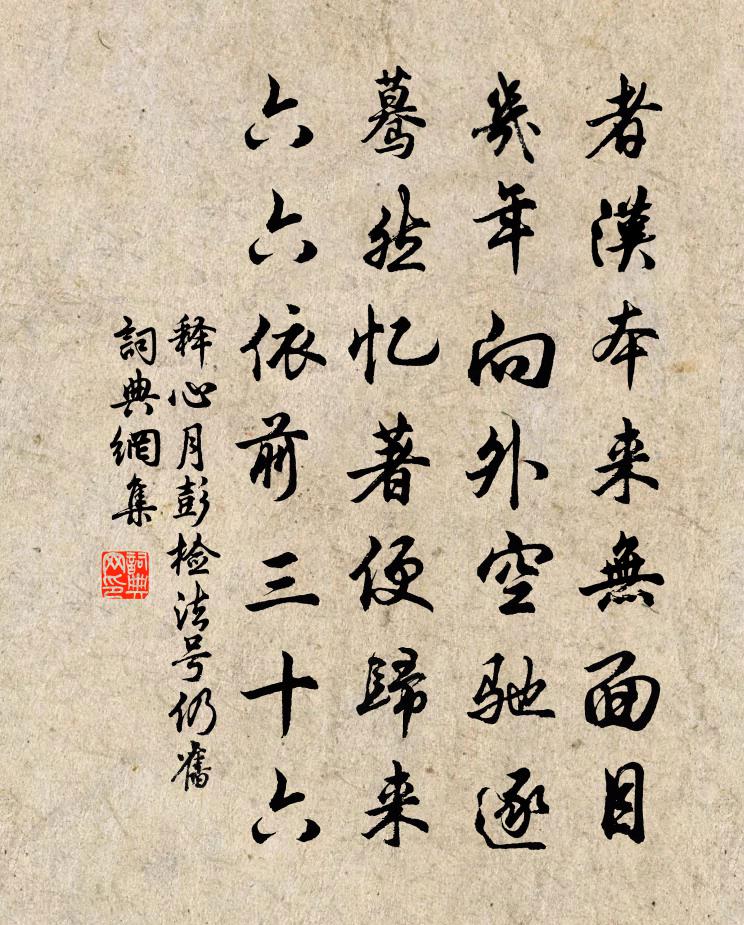 者漢本来無面目
幾年向外空驰逐
驀然忆著便歸来
六六依前三十六
释心月彭检法号仍舊
詞典網集
詞典网印